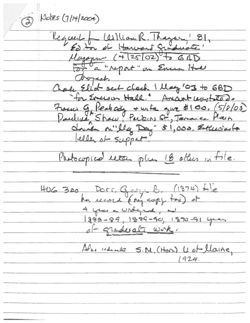 ② Notes (7/14/2004)
Request fr William R. Thayer, '81,
Editor of Harvard Graduates'
Magazine (4/25/02) to GBD
for a "report" on Emerson Hall
Project
Chas. Eliot sent check 1 May '03 to GBD
"for Emerson Hall."
Francis G. Peabody + wife gave $100. (5/2/03)
Pauline A. Shaw, Perkins St., Jamaica Plain
"$1,000. Enthusiastic
letter of support
Photocopied letters plus 18 others in file.
HUG 300 Dorr, George B. (1874) file
has record (my copy too) of
4 years undergrad, and
1888-89, 1889-90, 1890-91 years
of graduate work.
Also includes S.M. (Hon) U of Maine,
1924